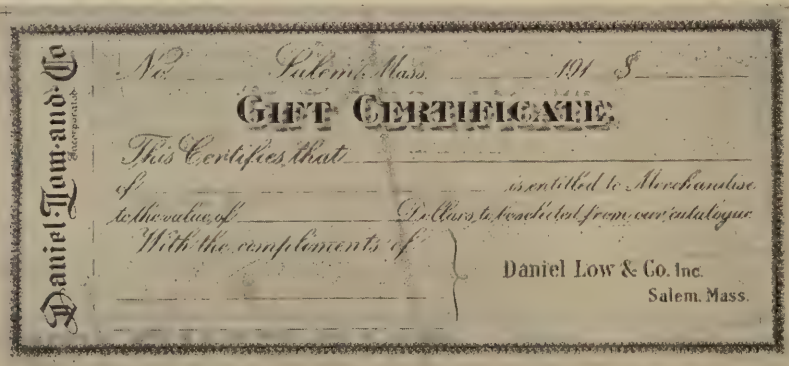 Daniel Low and Co
Incorporated
No. Salem, Mass. 191 $
GIFT CERTIFICATE
This Certifies that
of is entitled to Merchandise
to the value of Dollars, to be selected from our catalogue
With the compliments of
Daniel Low & Co. Inc.
Salem, Mass.